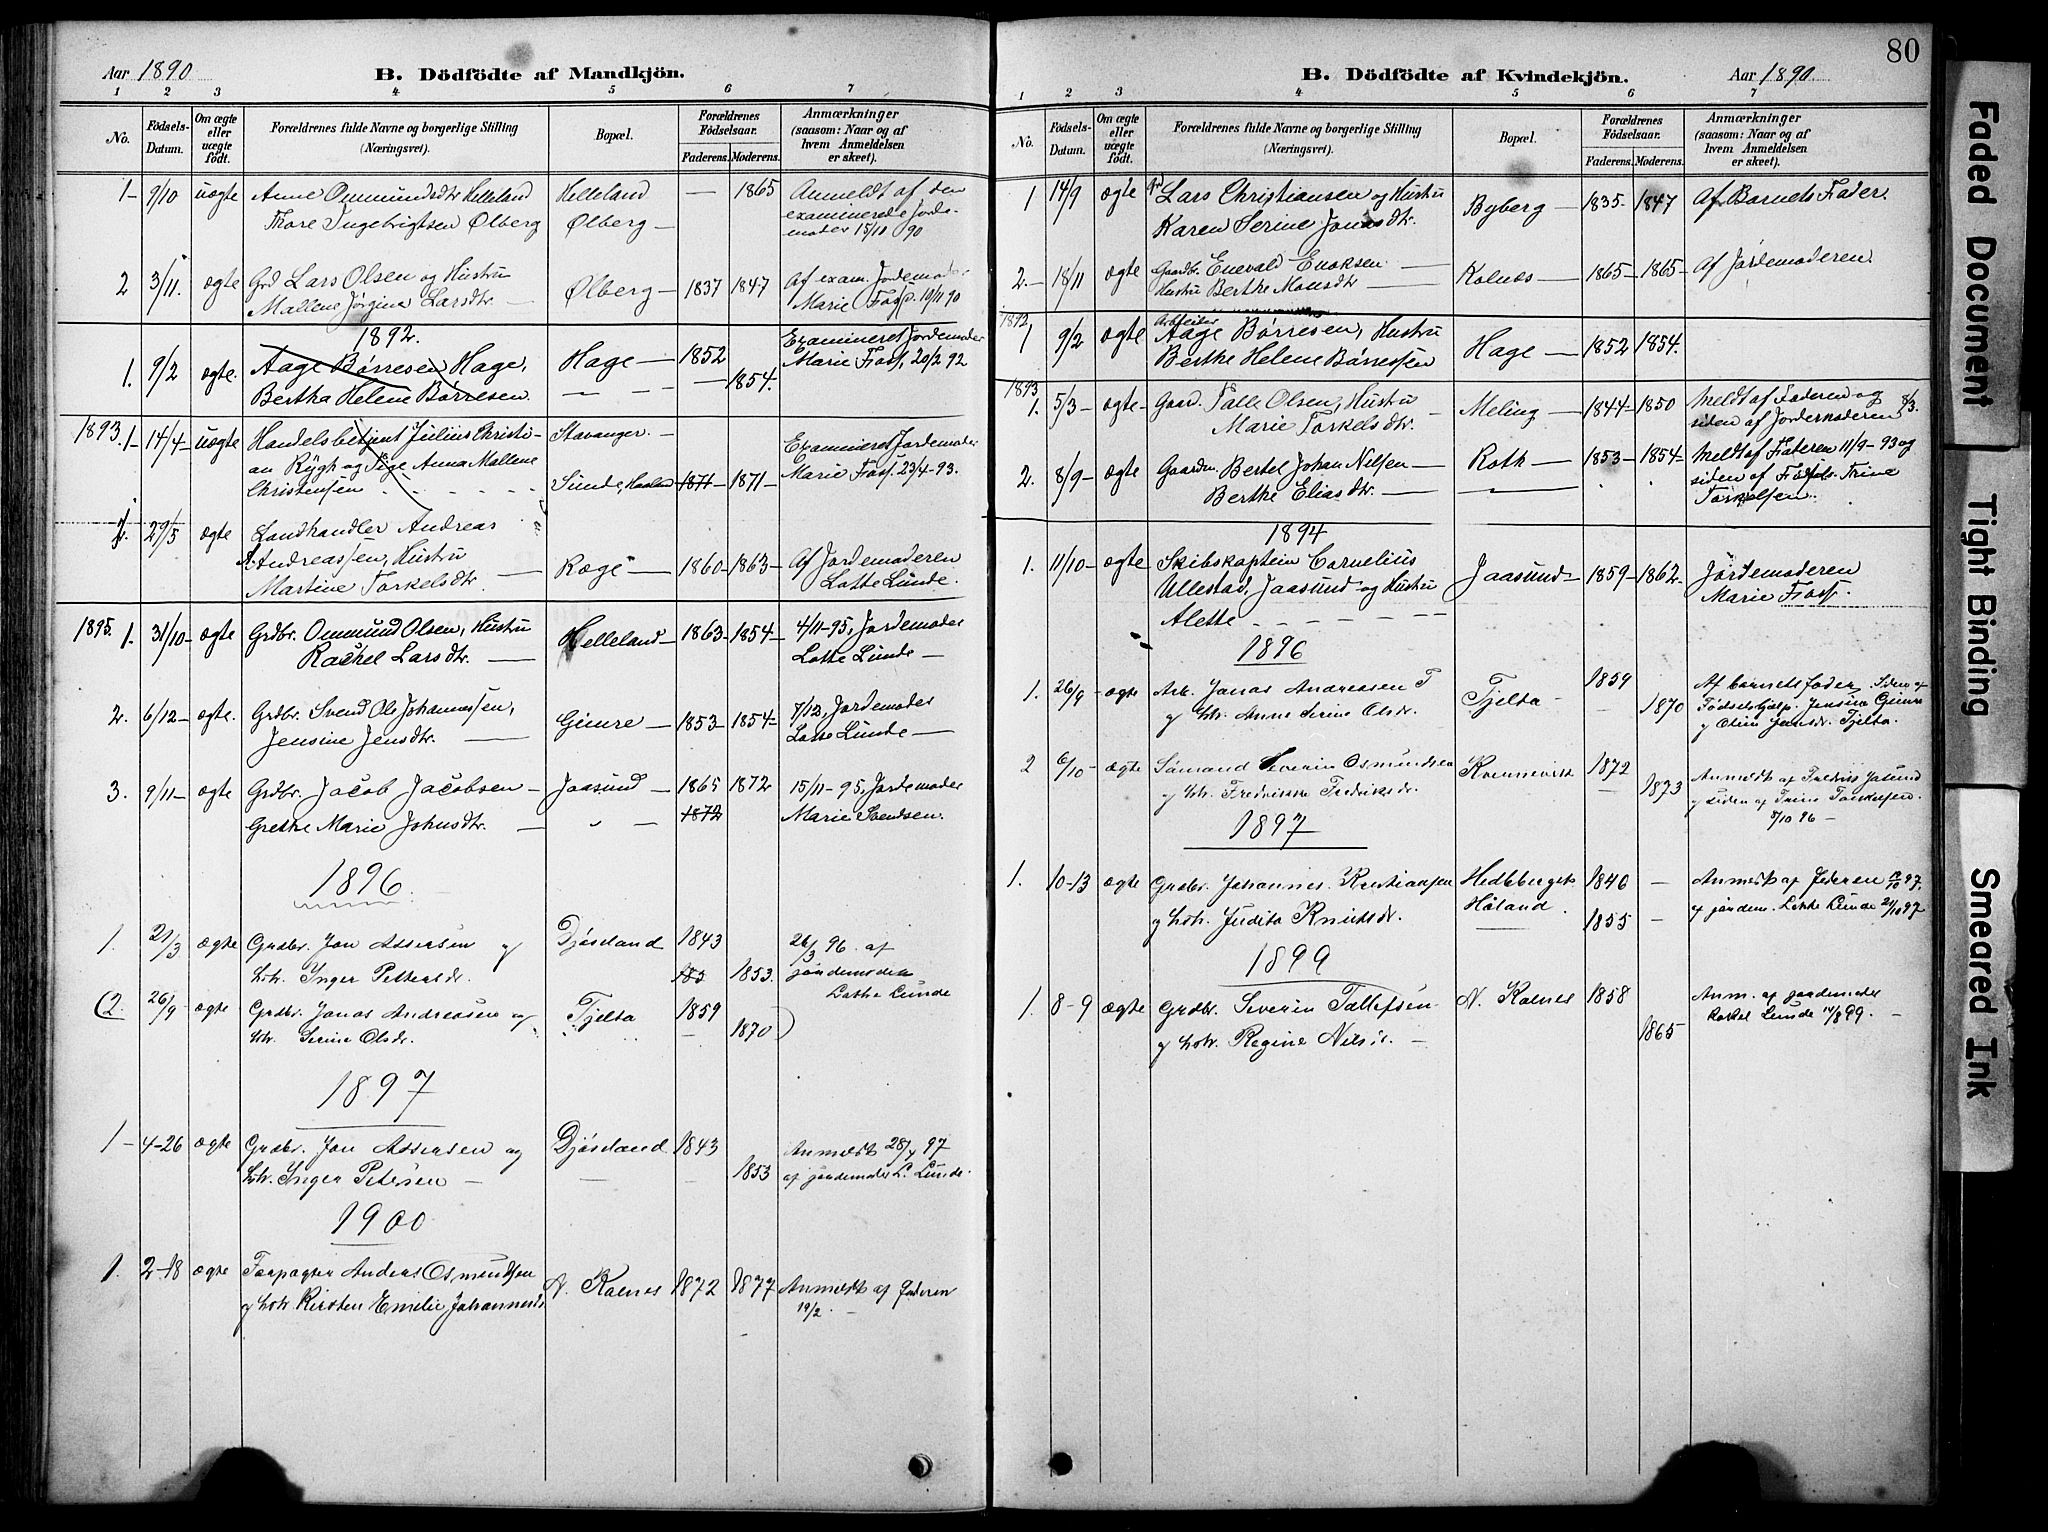 Aar 1890
B. Dödfödte af Mandkjön.
1 2 3 4 5 6 7
No. Födsels-Datum. Om ægte eller uægte födt. Forældrenes fulde Navne og borgerlige Stilling (Næringsvei). Bopæl. Forældrenes Födselsaar. Faderens. Moderens. Anmærkninger (saasom: Naar og af hvem Anmeldelsen er skeet).
1 - 9/10 uægte Anne Ommundsdtr Helleland Helleland — 1865 Anmeldt af den
Thore Ingebrigtsen Ølberg Ølberg — examinerede Jorde-
moder 15/11 90
2 3/11. ægte Grd Lars Olsen og Hustru Ølberg — 1837 1847 Af exam. Jordemoder
Mallene Jørgine Larsdtr. — Marie Foss. 10/11 90
1892.
1. 9/2 ægte. Aage Børresen Hage, Hage — 1852 Examineret Jordemoder
Bertha Helene Børresen. — — — 1854. Marie Foss, 20/2 92
1893. 1 - 14/4 - uægte Handelsbetjent Julius Christi- Stavanger. — Examineret Jordemoder
an Rygh og Pige Anna Mallene Marie Foss. 23/4-93.
Christensen Sunde, Haaland 1871 - 1871 -
29/5 ægte Landhandler Andreas
A. Andreassen, Hustru Ræge — 1860 - 1863 - Af Jordemoderen
Martine Torkelsdtr. — Lotte Lunde.
1895. 1. 31/10 - ægte Grdbr. Ommund Olsen, Hustru Helleland - 1863 - 1854 - 4/11-95, Jordemoder
Rachel Larsdtr. — Lotte Lunde —
2. 6/12 - ægte. Grdbr. Svend Ols Johannessen, Gimre — 1853 - 1854 - 7/12, Jordemoder
Jensine Jensdtr. — Lotte Lunde —
3. 9/11 - ægte Grdbr. Jacob Jacobsen — Jaasund — 1865 1872 15/11-95, Jordemoder
Grethe Marie Johnsdtr. — " — 1872 Marie Svendsen.
1896.
1. 21/3 ægte Grdbr. Jon Assersen og Djøseland 1843 26/3 96. af
hstr. Inger Pettersdr. 185 1853. jordemoder
Lotte Lunde
(2. 26/9 - ægte Grdbr. Jonas Andreasen og Tjelta 1859
hstr. Serine Olsdr. — 1870)
1897
1 - 4-26 ægte Grdbr. Jon Assersen og Djøseland 1843 Anmeldt 28/4 97
hstr. Inger Petersen — — — 1853 af jordemoder L. Lunde.
1900
1. 2-18 ægte Forpagter Anders Osmundsen N. Kolnes 1872 1877 Anmeldt af faderen
og hstr Kirsten Emilie Johannesdr 19/2 —
80
B. Dödfödte af Kvindekjön.
Aar 1890
1 2 3 4 5 6 7
No. Födsels-Datum. Om ægte eller uægte födt. Forældrenes fulde Navne og borgerlige Stilling (Næringsvei). Bopæl. Forældrenes Födselsaar. Faderens. Moderens. Anmærkninger (saasom: Naar og af hvem Anmeldelsen er skeet).
1 14/9 ægte Grd Lars Christiansen og Hustru Byberg — 1835 - 1847 Af Barnets Fader.
Karen Serine Jonasdtr.
2. - 18/11 ægte Gaardb. Enevald Enoksen — Kolnes — 1865 - 1865 - Af Jordemoderen.
Hustru Berthe Monsdtr —
1892 1 9/2 ægte Arbeider Aage Børresen, Hustru Hage — 1852 1854.
Berthe Helene Børresen
1893 1. 5/3 - ægte - Gaar. Talle Olsen, Hustru — Meling — 1844 - 1850 Meldt af Faderen og
Marie Torkelsdtr. siden af Jordemoderen 8/3.
2. 8/9 - ægte Gaardm. Bertel Johan Nilsen — Roth — 1853 - 1854 - Meldt af Faderen 11/9-93 og
Berthe Eliasdtr. — siden af Trine
Torkelsen.
1894
1. 11/10 - ægte Skibskaptein Cornelius Jaasund - 1859 - 1862 - Jordemoderen
Ullestad, Jaasund og Hustru Marie Foss.
Alette - - - - -
1896
1. 26/9 - ægte Arb. Jonas Andreasen T Tjelta - 1859 Af barnets fader. Siden af
og hstr. Anne Serine Olsdr. — 1870 Fødselshjælp. Jensine Gimre
og Oline Tjelta.
2 6/10 - ægte Sømand Severin Osmundsen Kvernevik 1872 Anmeldt af Fredrik Jasund
og hstr. Fredrikke Fredriksdr. — 1873 og siden af Trine Torkelsen.
8/10 96 —
1897
1. 10-13 ægte Grdbr. Johannes Kristiansen 1840 — Anmeldt af Federen 97,
og hstr. Judita Knutsdr. Håland. 1855 — af jordem. Lotte Lunde 21/10 97
1899
1. 8-9 ægte Grdbr. Severin Tollefsen N. Kolnes 1858 Anm. af jordemoder
og hstr. Regine Nilsdr. — 1865 Rakel Lunde 14/8 99. —
Faded Document
Tight Binding
Smeared Ink